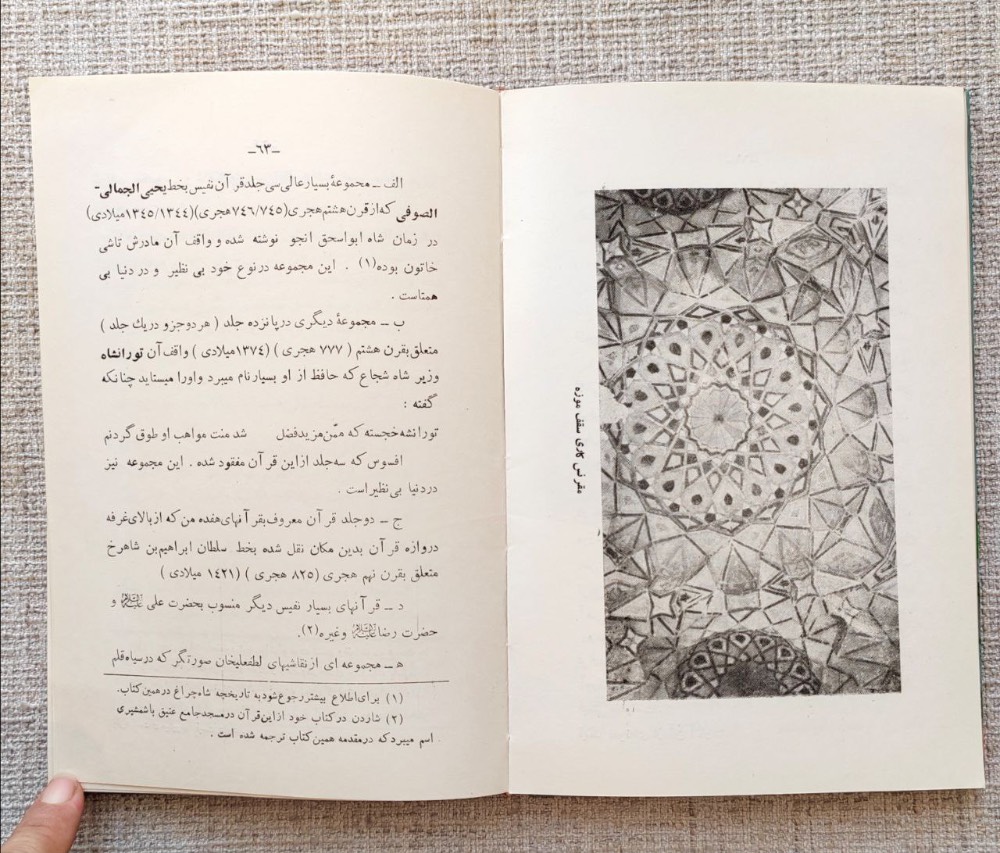 ـ۶۳ـ
الف ـ مجموعهٔ بسیار عالی سی جلد قرآن نفیس بخط یحیی الجمالی-
الصوفی که از قرن هشتم هجری (۷۴۶/۷۴۵ هجری) (۱۳۴۵/۱۳۴۴ میلادی)
در زمان شاه ابواسحق انجو نوشته شده و واقف آن مادرش تاشی
خاتون بوده (۱) . این مجموعه در نوع خود بی نظیر و در دنیا بی
همتاست .
ب ـ مجموعهٔ دیگری در پانزده جلد ( هر دو جزو در یك جلد )
متعلق بقرن هشتم ( ۷۷۷ هجری ) (۱۳۷۴ میلادی ) واقف آن تورانشاه
وزیر شاه شجاع که حافظ از او بسیار نام میبرد و اورا میستاید چنانکه
گفته :
تورانشه خجسته که ممّن مزید فضل شد منت مواهب او طوق گردنم
افسوس که سه جلد از این قرآن مفقود شده . این مجموعه نیز
در دنیا بی نظیر است .
ج ـ دو جلد قرآن معروف بقرآنهای هفده من که از بالای غرفه
دروازه قرآن بدین مکان نقل شده بخط سلطان ابراهیم بن شاهرخ
متعلق بقرن نهم هجری (۸۲۵ هجری ) (۱۴۲۱ میلادی )
د ـ قرآنهای بسیار نفیس دیگر منسوب بحضرت علی علیه‌السلام و
حضرت رضا علیه‌السلام وغیره (۲).
ه ـ مجموعه ای از نقاشیهای لطفعلیخان صورتگر که در سیاه قلم
(۱) برای اطلاع بیشتر رجوع شود به تاریخچه شاه چراغ در همین کتاب.
(۲) شاردن در کتاب خود از این قرآن در مسجد جامع عتیق باشمشیری
اسم میبرد که در مقدمه همین کتاب ترجمه شده است .
مقرنس کاری سقف موزه